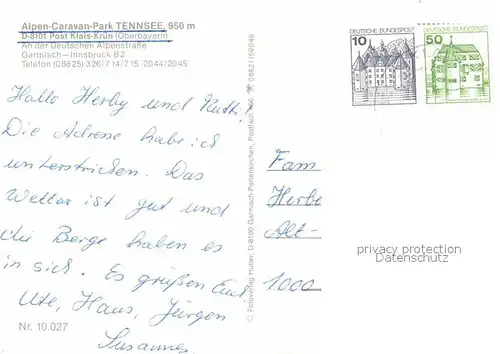 Alpen-Caravan-Park TENNSEE, 950 m
D-8101 Post Klais-Krün (Oberbayern)
An der Deutschen Alpenstraße
Garmisch–Innsbruck B2
Telefon (08825) 326/714/715/2044/2045
Hallo Herby und Ruth!
Die Adresse habe ich
unterstrichen. Das
Wetter ist gut und
die Berge haben es
in sich. Es grüßen Euch
Ute, Hans, Jürgen
Susanne
Nr. 10.027
© Fotoverlag Huber, D-8100 Garmisch-Partenkirchen, Postfach
DEUTSCHE BUNDESPOST
10
DEUTSCHE BUNDESPOST
50
Fam
Herbe
Alt-
1000
privacy protection
Datenschutz